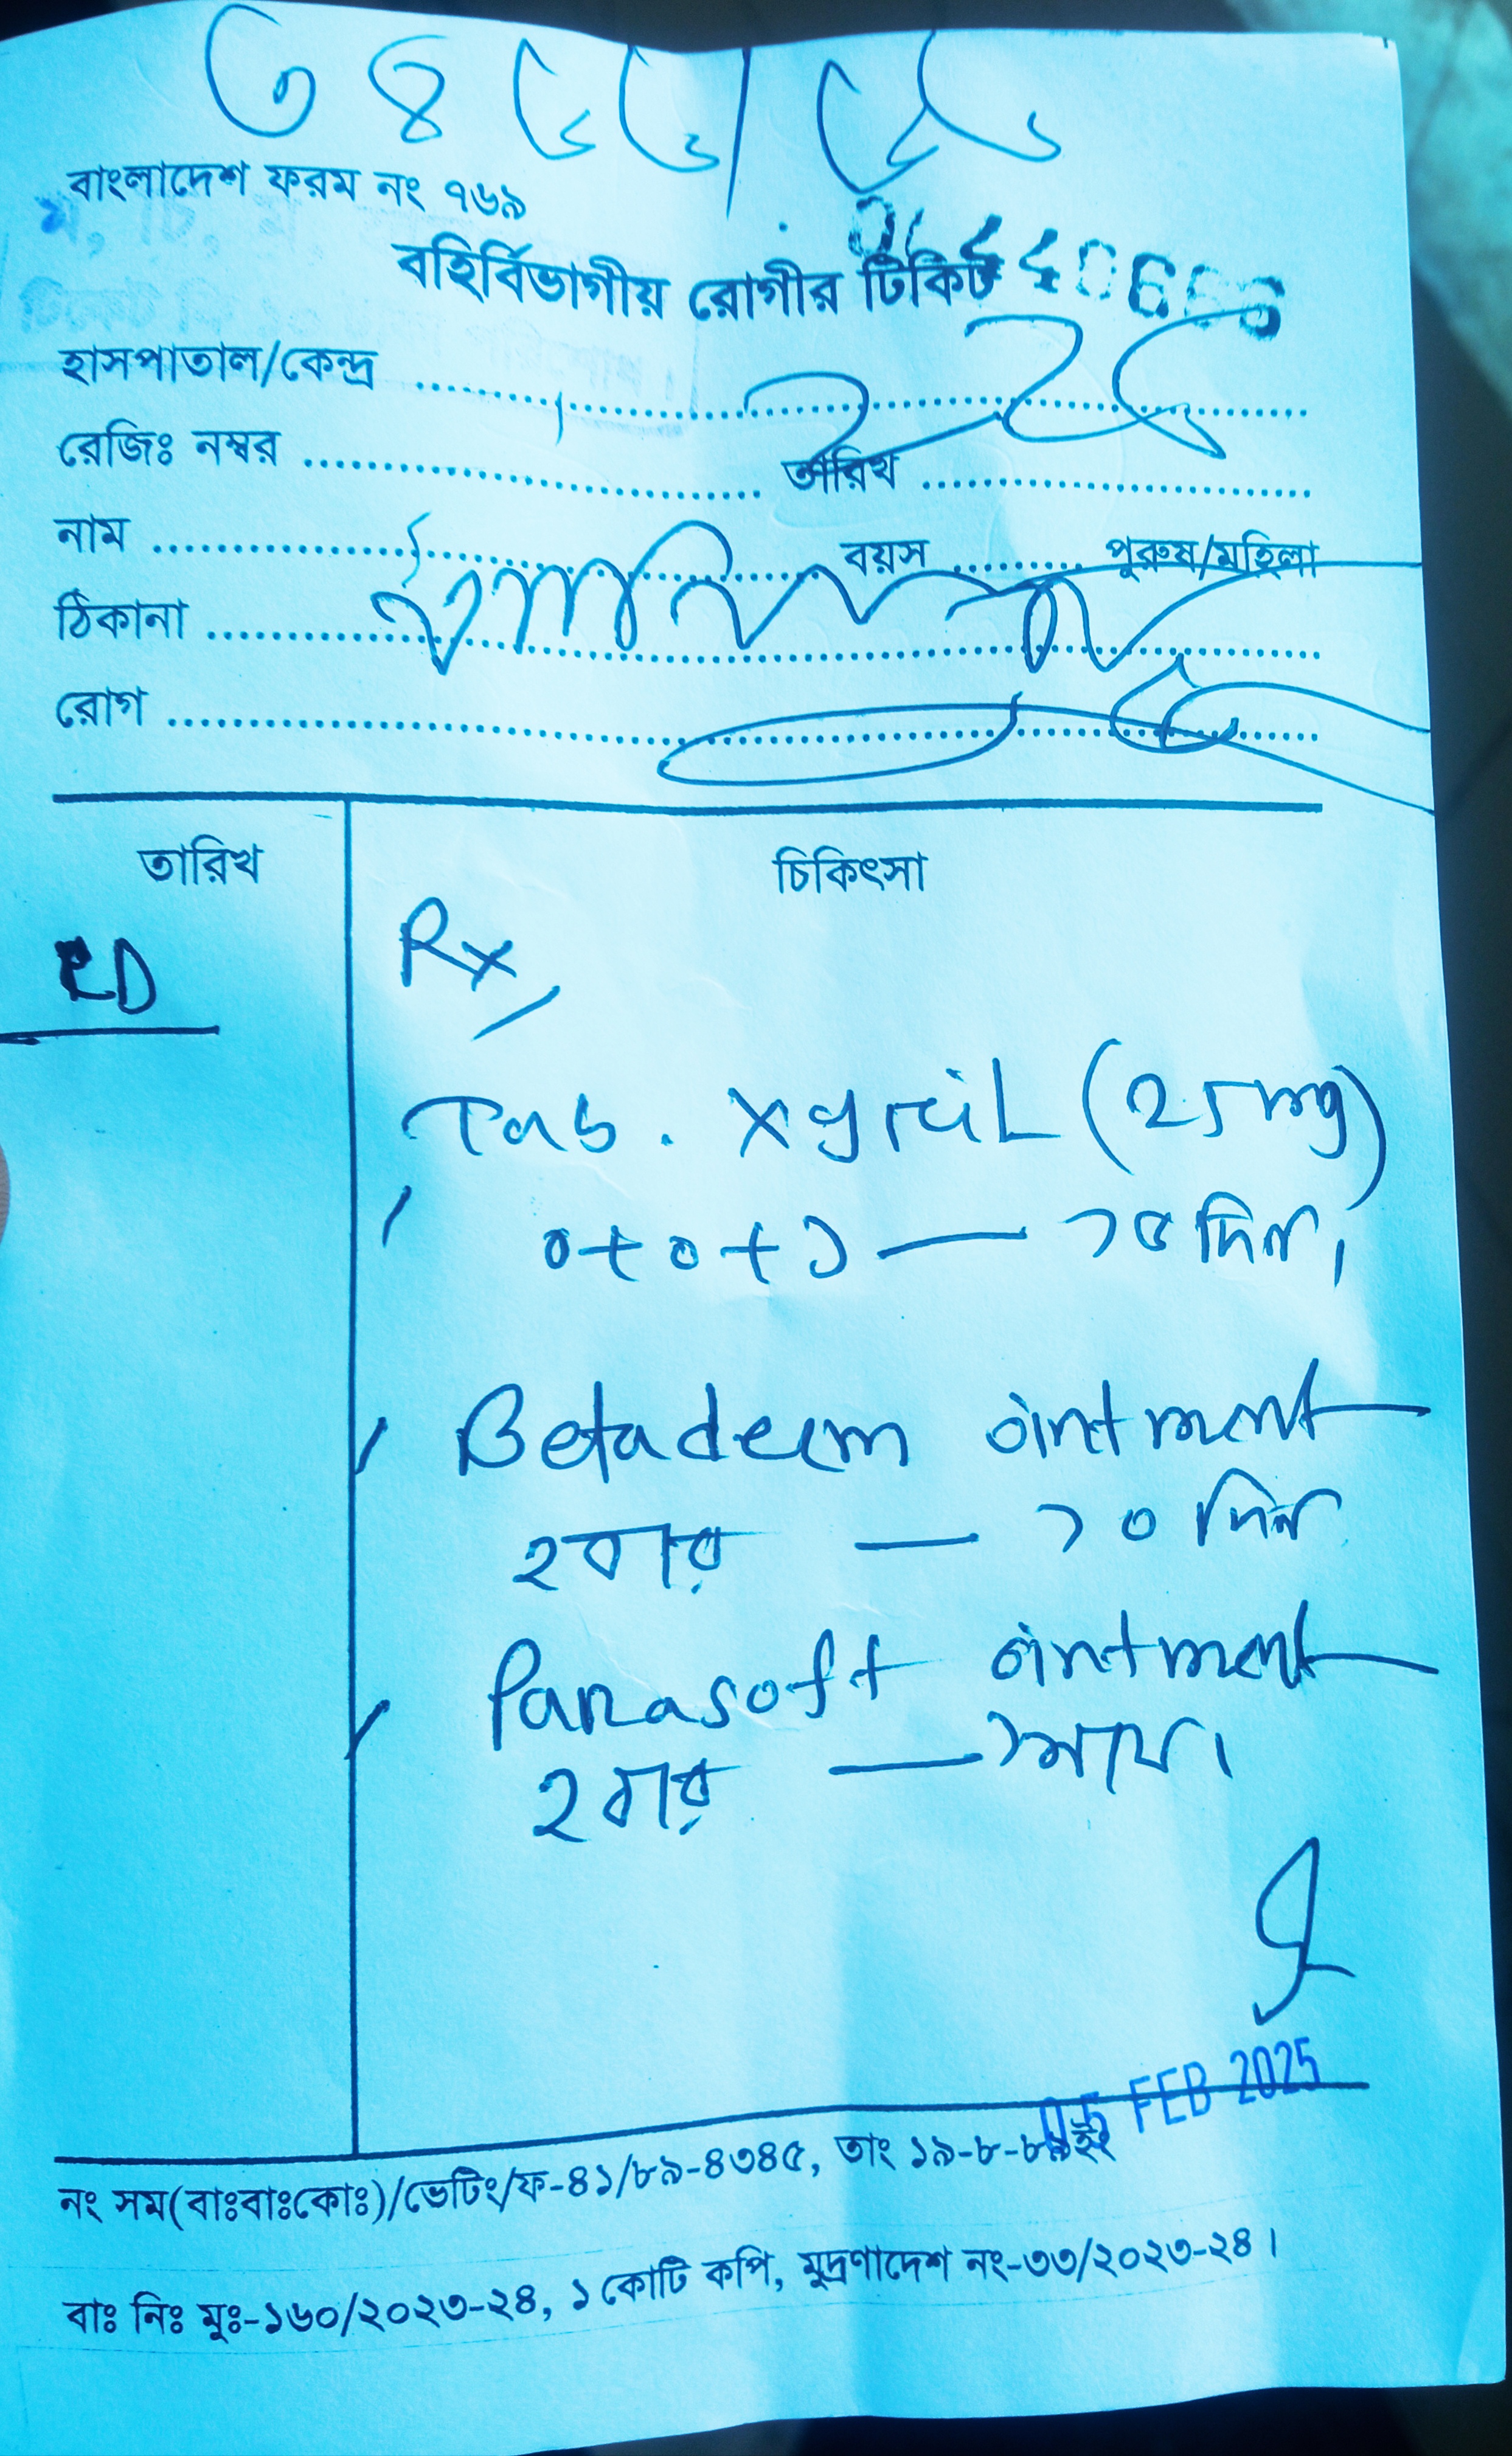 বাংলাদেশ ফরম নং ৭৬৯
বহির্বিভাগীয় রোগীর টিকিট
হাসপাতাল/কেন্দ্র
রেজিঃ নম্বর তারিখ
নাম বয়স পুরুষ/মহিলা
ঠিকানা
রোগ
তারিখ চিকিৎসা
Rx
Tab. Xyril (25 mg)
০+০+১ — ১৫ দিন।
Betaderm ointment
২বার — ১০ দিন
Parasoft ointment
২বার — ১মাস।
05 FEB 2025
নং সম(বাঃবাঃকোঃ)/ভেটিং/ফ-৪১/৮৯-৪৩৪৫, তাং ১৯-৮-৮৯ইং
বাঃ নিঃ মুঃ-১৬০/২০২৩-২৪, ১ কোটি কপি, মুদ্রণাদেশ নং-৩৩/২০২৩-২৪।